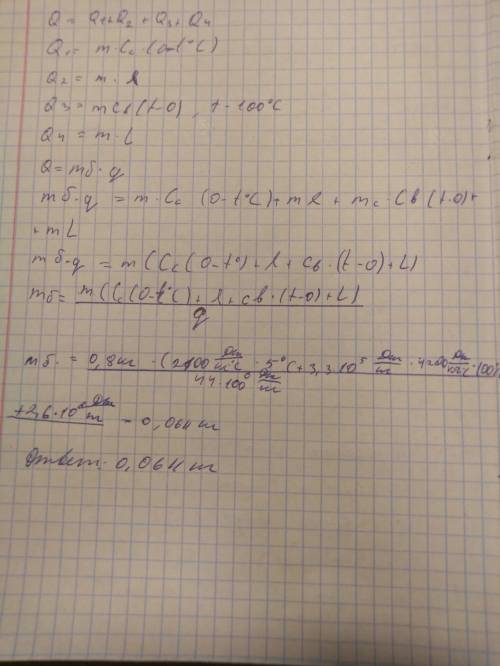 Q = Q₁+Q₂ + Q₃ + Q₄
Q₁ = m·Cc·(0-t°C)
Q₂ = m·λ
Q₃ = mCв(t-0), t-100°C
Q₄ = m·L
Q = mб·q
mб·q = m·Cc (0-t°C)+mλ + mc·Cв(t-0)+
+mL
mб·q = m(Cc(0-t°)+λ+cв·(t-0)+L)
mб= m(Cc(0-t°C)+λ+cв·(t-0)+L)
q
mб. = 0,8кг·(2100 Дж/кг°C · 5°C+3,3·10⁵ Дж/кг · 4200 Дж/кг°C·100
44·100⁶ Дж/кг
+2,6·10⁶ Дж/кг - 0,061 кг
Ответ: 0,061 кг